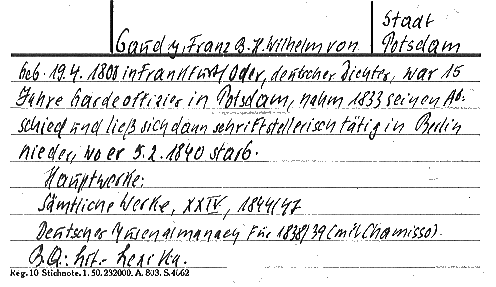 Stadt
Gaudy, Franz B. H. Wilhelm von Potsdam
Geb. 19.4. 1800 in Frankfurt/Oder, deutscher Dichter, war 15
Jahre Gardeoffizier in Potsdam, nahm 1833 seinen Ab-
schied und ließ sich dann schriftstellerisch tätig in Berlin
nieder, wo er 5.2. 1840 starb.
Hauptwerke:
Sämtliche Werke, XXIV, 1844/47
Deutscher Musenalmanach für 1838/39 (mit Chamisso).
B.Q.: Lit.- Lexika.
Reg. 10 Stichnote. 1. 50. 232000. A. 803. S. 4662